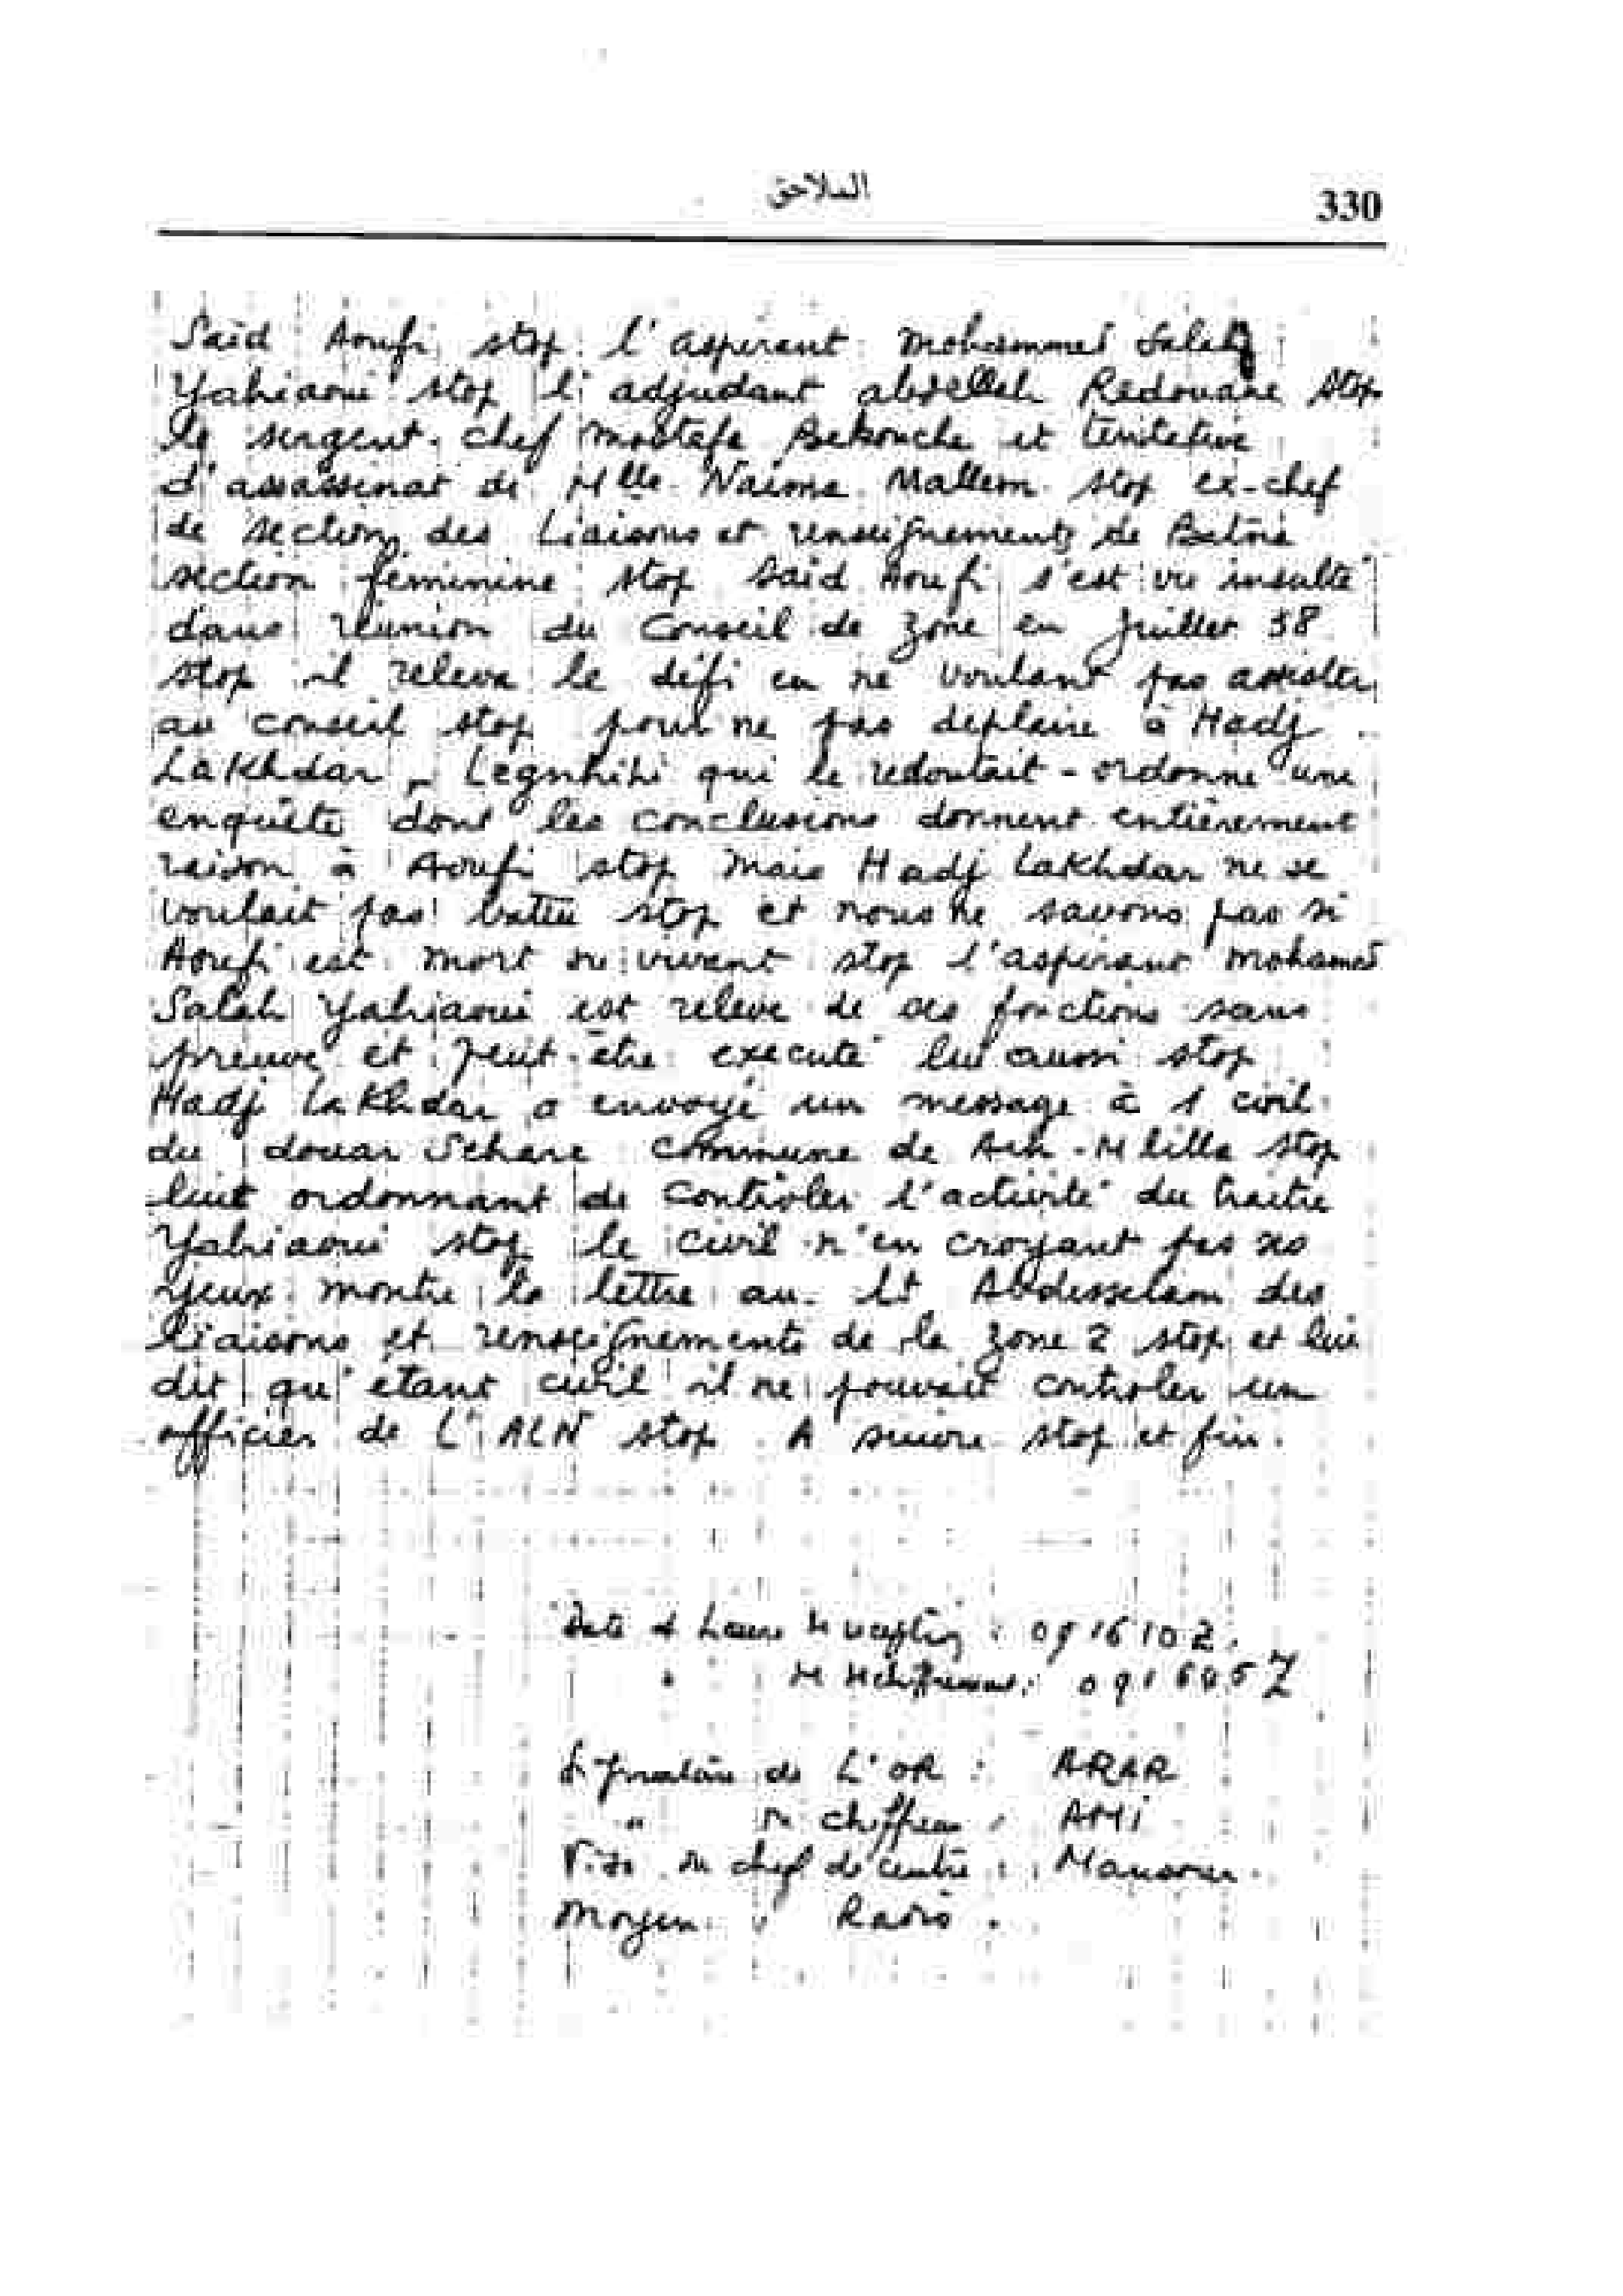 الملاحق
330
Said Aoufi stop l'aspirant Mohammed Salah
Yahiaoui stop l'adjudant abdellah Redouane stop
le sergent-chef Mostefa Bekouche et tentative
d'assassinat de Mlle Naima Mallem stop ex-chef
de section des Liaisons et renseignements de Batna
section féminine stop Said Aoufi s'est vu insulté
dans réunion du Conseil de Zone en Juillet 58
stop il releva le défi en ne voulant pas assister
au conseil stop pour ne pas deplaire à Hadj
Lakhdar - qui le redoutait - ordonne une
enquête dont les conclusions donnent entièrement
raison à Aoufi stop Mais Hadj Lakhdar ne se
voulait pas battu stop et nous ne savons pas si
Aoufi est mort ou vivant stop l'aspirant Mohamed
Salah Yahiaoui est releve de ses fonctions sans
preuve et peut-être executé lui aussi stop
Hadj Lakhdar a envoyé un message à 1 civil
du douar commune de Ain-M'lilla stop
luit ordonnant de contrôler l'activité du traitre
Yahiaoui stop le civil n'en croyant pas ses
yeux montre la lettre au Lt Abdesselam des
liaisons et renseignements de la zone 2 stop et lui
dit qu'étant civil il ne pouvait controler un
officier de L'ALN stop A suivre stop et fin.
Date et heure de : 091610Z.
" de : 091645Z
Signature de L'OR : ARAR
" du chiffreur : AMI
Visa du chef de centre : Mansour.
Moyen : Radio.